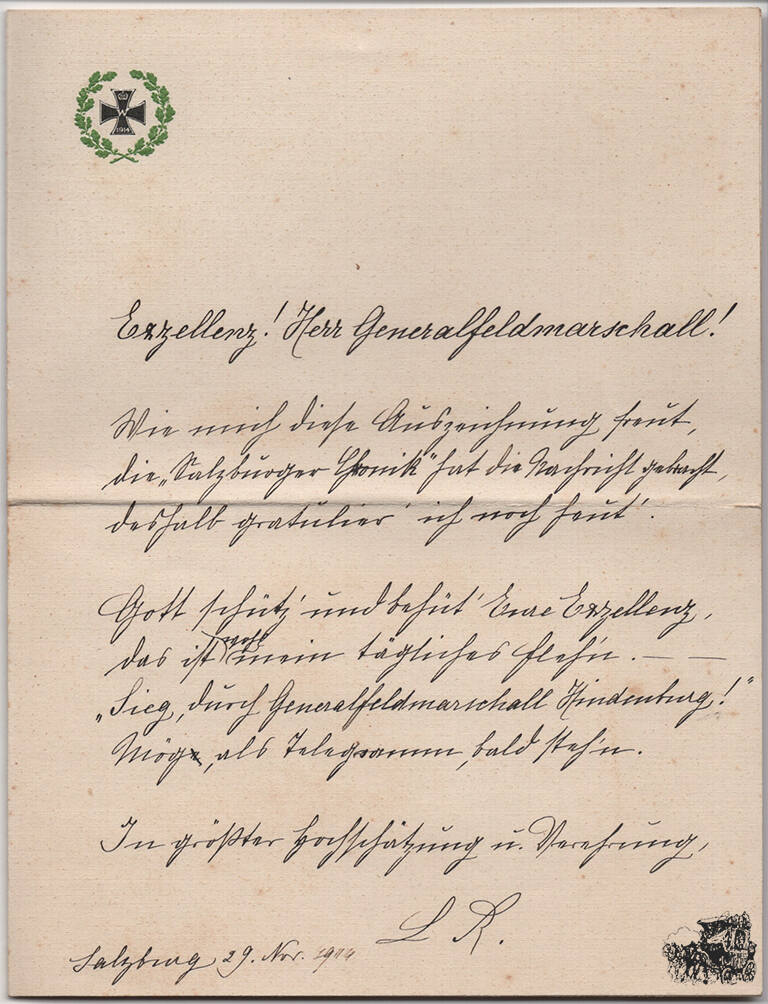 W
1914
Exzellenz! Herr Generalfeldmarschall!
Wie mich diese Auszeichnung freut,
die „Salzburger Chronik" hat die Nachricht gebracht,
deshalb gratulier' ich noch heut'.
Gott schütz' und behüt' Eure Exzellenz,
das ist wohl mein tägliches Fleh'n. — —
„Sieg, durch Generalfeldmarschall Hindenburg!"
Mög, als Telegramm, bald steh'n.
In größter Hochschätzung u. Verehrung,
L R.
Salzburg 29. Nov. 1914